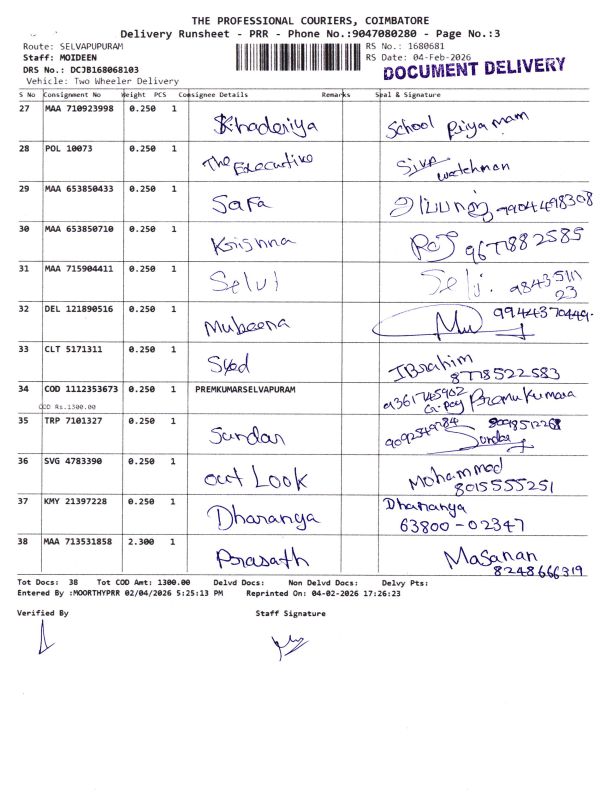 THE PROFESSIONAL COURIERS, COIMBATORE
Delivery Runsheet - PRR - Phone No.:9047080280 - Page No.:3
Route: SELVAPUPURAM
RS No.: 1680681
Staff: MOIDEEN
RS Date: 04-Feb-2026
DRS No.: DCJB168068103
DOCUMENT DELIVERY
Vehicle: Two Wheeler Delivery
S No Consignment No Weight PCS Consignee Details Remarks Seal & Signature
27 MAA 710923998 0.250 1 Khaderiya School Priya mam
28 POL 10073 0.250 1 The Executive Siva watchman
29 MAA 653850433 0.250 1 Safa 9904498308
30 MAA 653850710 0.250 1 Krishna Raj 9677882585
31 MAA 715904411 0.250 1 Selvi Selvi. 98435111
23
32 DEL 121890516 0.250 1 Mubeena 9944370449.
33 CLT 5171311 0.250 1 Syed IBrahim
8778522583
34 COD 1112353673 0.250 1 PREMKUMARSELVAPURAM 9361745902
COD Rs.1300.00 G-pay
35 TRP 7101327 0.250 1 Sundar 9092549784
36 SVG 4783390 0.250 1 out Look Mohammed
8015555251
37 KMY 21397228 0.250 1 Dhananya Dhananya
63800-02347
38 MAA 713531858 2.300 1 Prasath Masanan
8248666319
Tot Docs: 38 Tot COD Amt: 1300.00 Delvd Docs: Non Delvd Docs: Delvy Pts:
Entered By :MOORTHYPRR 02/04/2026 5:25:13 PM Reprinted On: 04-02-2026 17:26:23
Verified By Staff Signature